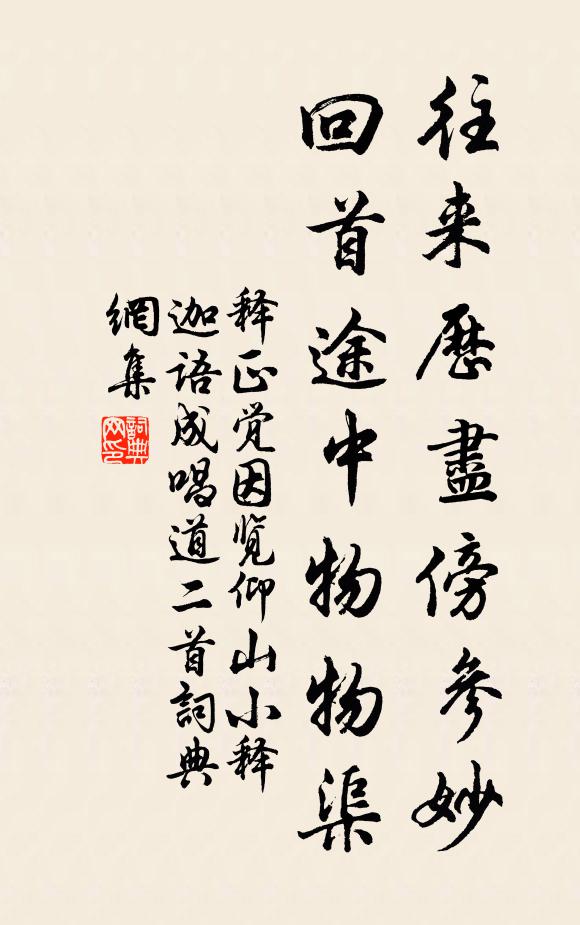 往来歷盡傍參妙
回首途中物物渠
释正觉因览仰山小释
迦语成唱道二首詞典
網集
詞典
网印